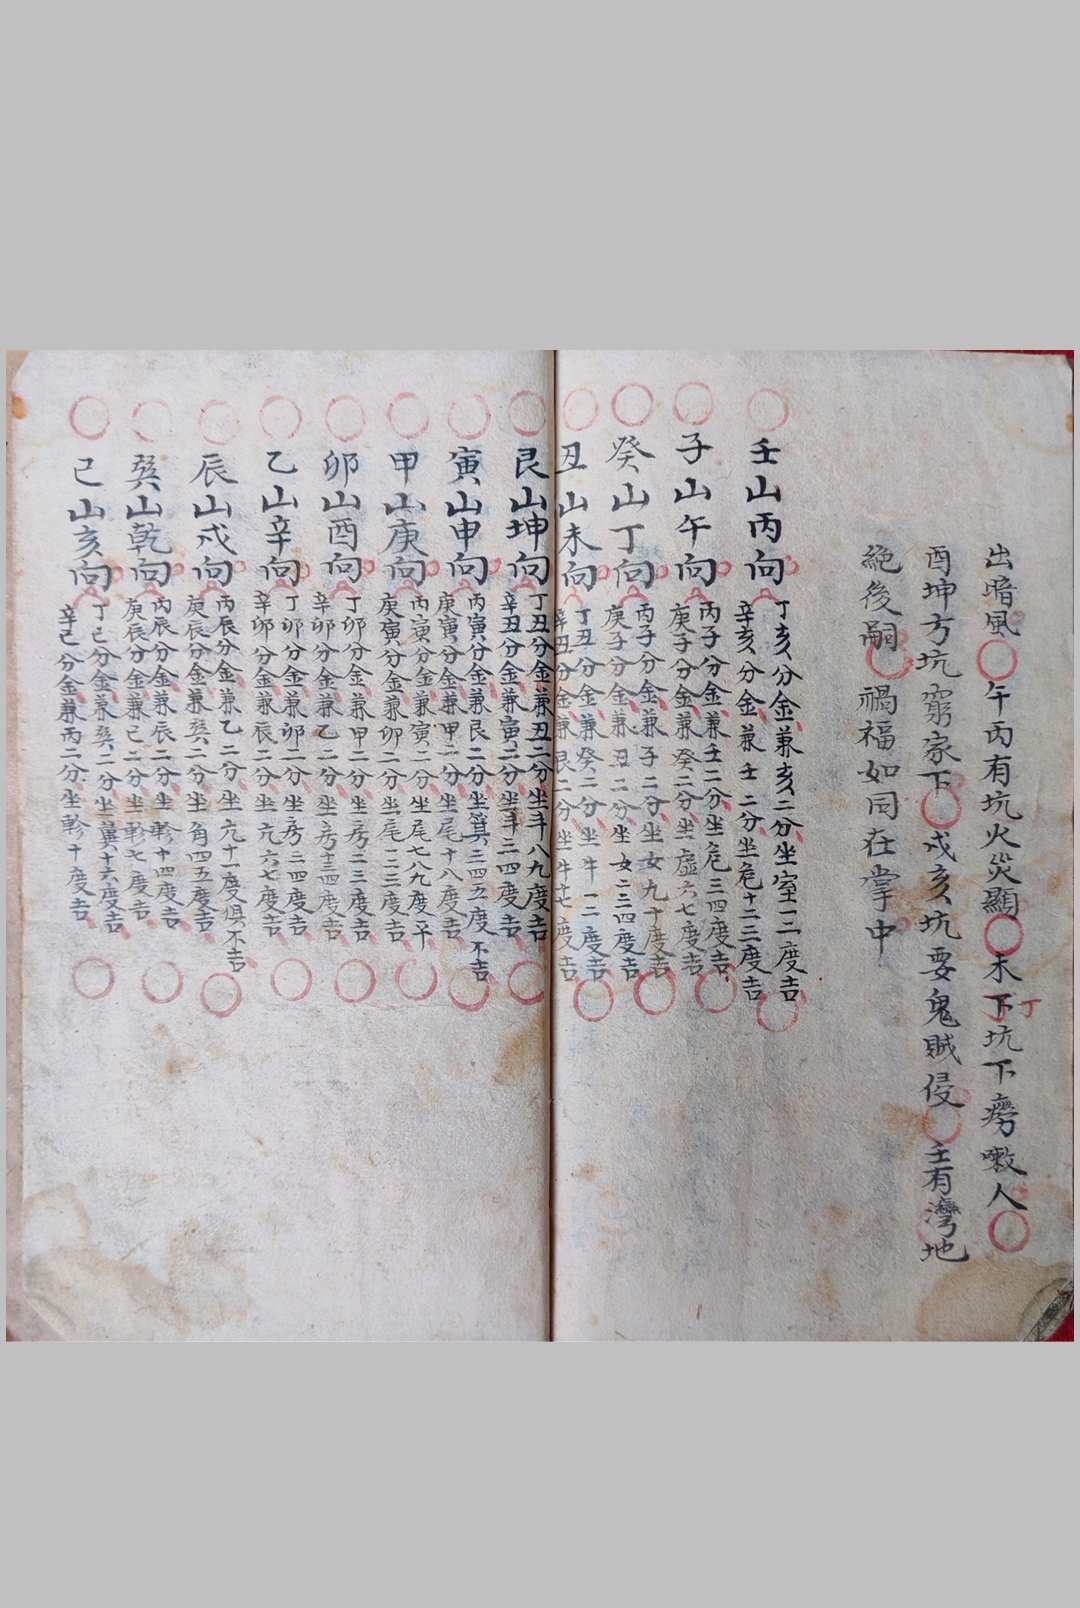 出暗風○午丙有坑火災顯○未下丁坑下癆嗽人○
酉坤方坑窮家下○戍亥坑要鬼賊侵○壬有灣地
絶後嗣○禍福如同在掌中
壬山丙向
丁亥分金兼亥二分坐室一二度吉
辛亥分金兼壬二分坐危十二三度吉
子山午向
丙子分金兼壬二分坐危三四度吉
庚子分金兼癸二分坐虛六七度吉
癸山丁向
丙子分金兼子二分坐女九十度吉
庚子分金兼丑二分坐女二三四度吉
丑山未向
丁丑分金兼癸二分坐牛一二度吉
辛丑分金兼艮二分坐斗度吉
艮山坤向
丁丑分金兼丑二分坐斗八九度吉
辛丑分金兼寅二分坐斗二四度吉
寅山申向
丙寅分金兼艮二分坐箕三四五度不吉
庚寅分金兼甲二分坐尾十八度吉
甲山庚向
丙寅分金兼寅二分坐尾七八九度平
庚寅分金兼卯二分坐尾二三度吉
卯山酉向
丁卯分金兼甲二分坐房二三度吉
辛卯分金兼乙二分坐房三四度吉
乙山辛向
丁卯分金兼卯二分坐房三四度吉
辛卯分金兼辰二分坐亢六七度吉
辰山戍向
丙辰分金兼乙二分坐亢十一度俱不吉
庚辰分金兼巽二分坐角四五度吉
巽山乾向
丙辰分金兼辰二分坐軫十四度吉
庚辰分金兼已二分坐軫七度吉
已山亥向
丁已分金兼巽二分坐翼十六度吉
辛已分金兼丙二分坐軫十度吉